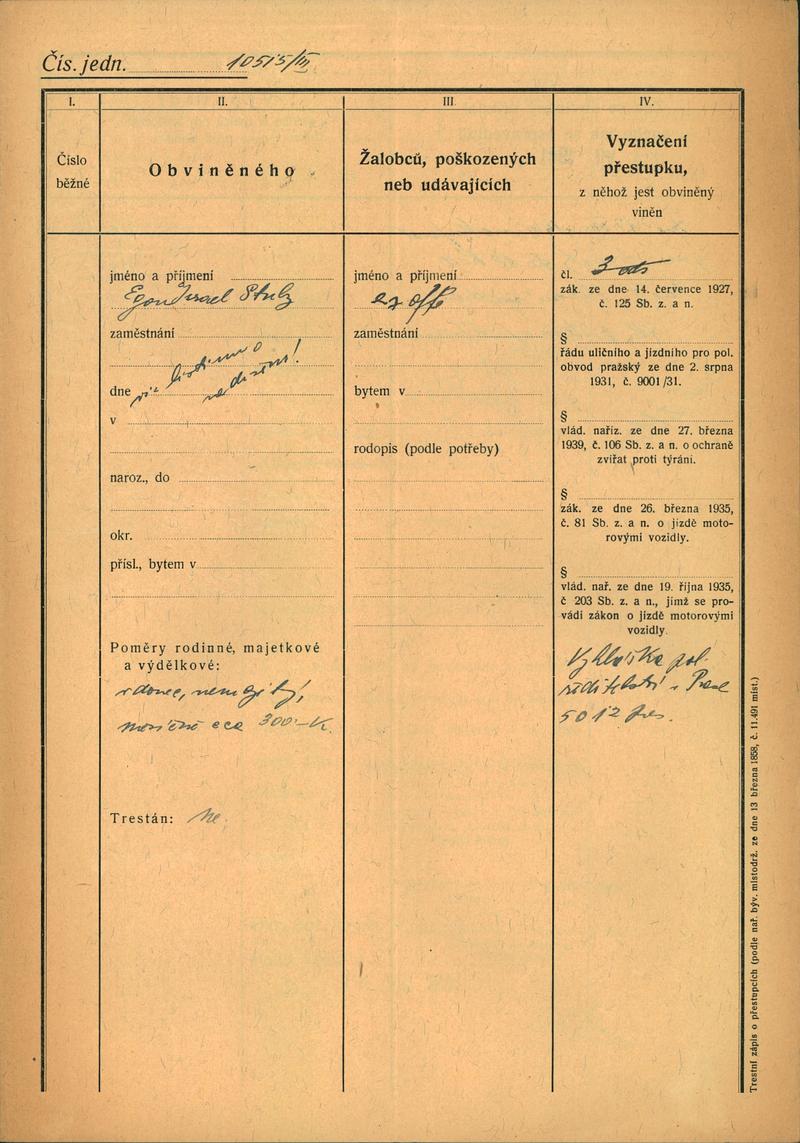 Čís. jedn. 10515/III
I.
II.
III.
IV.
Číslo
běžné
Obviněného
Žalobců, poškozených
neb udávajících
Vyznačení
přestupku,
z něhož jest obviněný
viněn
jméno a příjmení
Egon Israel Stulz
zaměstnání
dne viz
v
naroz., do
okr.
přísl., bytem v
Poměry rodinné, majetkové
a výdělkové:
300.-K.
Trestán: ne.
jméno a příjmení
ex offo
zaměstnání
bytem v
rodopis (podle potřeby)
čl. 3
zák. ze dne 14. července 1927,
č. 125 Sb. z. a n.
§
řádu uličního a jízdního pro pol.
obvod pražský ze dne 2. srpna
1931, č. 9001/31.
§
vlád. naříz. ze dne 27. března
1939, č. 106 Sb. z. a n. o ochraně
zvířat proti týrání.
§
zák. ze dne 26. března 1935,
č. 81 Sb. z. a n. o jízdě moto-
rovými vozidly.
§
vlád. nař. ze dne 19. října 1935,
č 203 Sb. z. a n., jímž se pro-
vádí zákon o jízdě motorovými
vozidly.
Vyhláška pol.
ředitelství v Praze
5012 pres.
Trestní zápis o přestupcích (podle nař. býv. místodrž. ze dne 13 března 1858, č. 11.491 míst.)